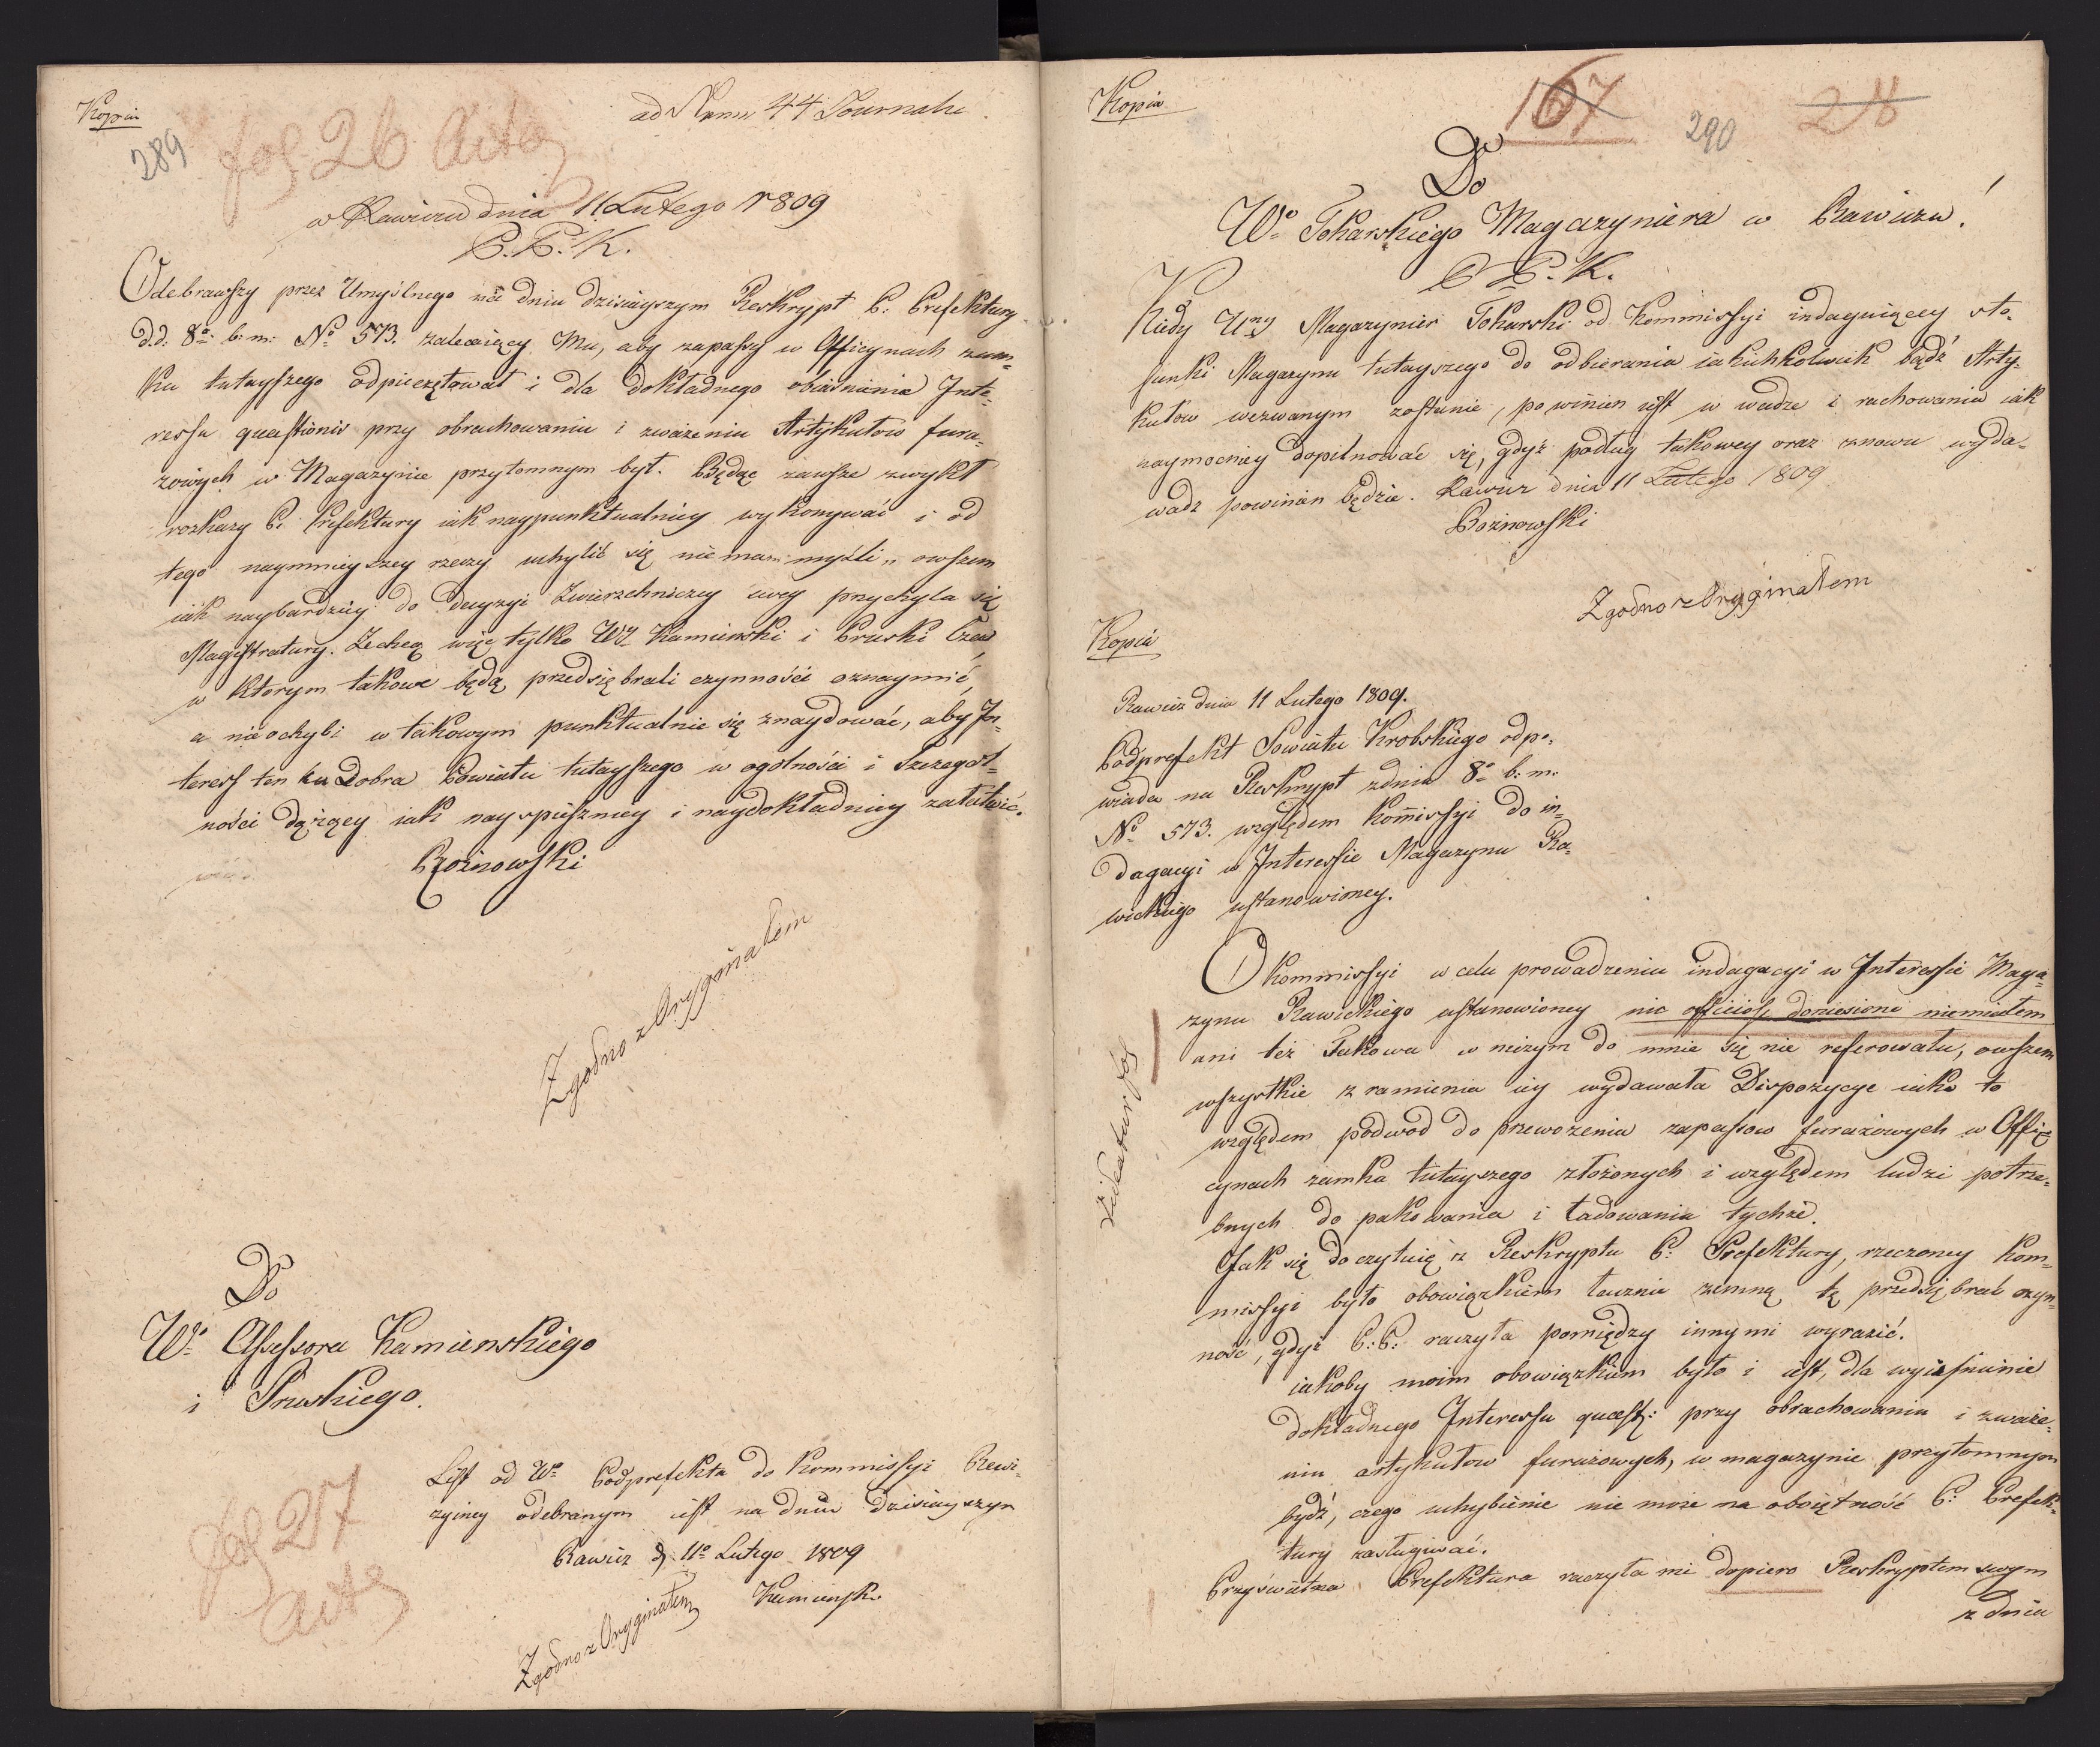 Kopia
289
fol 26 Acta
ad Num 44 Journalu
w Rawiczu dnia 11 Lutego 1809
P. P. K.
Odebrawszy przez Umyślnego na dniu dzisieyszym Reskrypt P: Prefektury
d.d: 8o b: m: No 573. zalecaiący Mu, aby zapassy w Officynach zam=
ku tutayszego odpieczętował i dla dokładnego obiasnienia Inte=
ressu quaestionis przy obrachowaniu i zważeniu Artykułow fura=
żowych w Magazynie przytomnym był. Będąc zawsze zwykł
rozkazy P. Prefektury iak naypunktualniey wykonywać i od
tego naymnieyszey rzeczy uchylić się nie mam myśli, owszem
iak naybardziey do decyzyi Zwierzchniczey swey przychyla się
Magistratury. Zechcą więc tylko WW Kamienski i Pruski Czas,
w którym takowe będą przedsiębrali czynności oznaymić,
a nieochybi w takowym punktualnie się znaydować, aby In=
teress ten ku Dobru Powiatu tutayszego w ogolności i Szczegol=
ności dążący iak nayspieszniey i naydokładniey załatwić.
Rożnowski
Zgodno z Oryginałem
Do
Wo Assessora Kamienskiego
i Pruskiego.
List od Wo Podprefekta do Kommissyi Rewi=
zyiney odebranym iest na dniu dzisieyszym
Rawicz d. 11o Lutego 1809
Kamienski
Zgodno z Oryginałem
fol 27
Acta
Kopia
167
290
28
Do
Wo Tokarskiego Magazyniera w Rawiczu.
P. P. K.
Kiedy Urny Magazynier Tokarski od Kommissyi indaguiącey sto=
sunki Magazynu tutayszego do odbierania iakichkolwiek bądź Arty=
kułow wezwanym zostanie, powinien iest w wadze i rachowaniu iak
naymocniey dopilnować się, gdyż podług takowey oraz znowu wyda=
wadz powinien będzie. Rawicz dnia 11 Lutego 1809
Rożnowski
Zgodno z Oryginałem
Kopia
Rawicz dnia 11 Lutego 1809.
Podprefekt Powiatu Krobskiego odpo=
wiada na Reskrypt zdnia 8o b: m:
No 573. względem Komissyi do in=
dagacyi w Interessie Magazynu Ra=
wickiego ustanowioney.
O Kommissyi w celu prowadzenia indagacyi w Interessie Maga=
zynu Rawickiego ustanowioney nic officios doniesiono niemiałem
ani też Takowa w niczym do mnie się nie referowała, owszem
wszystkie z ramienia iey wydawała Dispozycye iako to
względem podwod do przewożenia zapassow furażowych w Offi=
cynach zamku tutayszego złożonych i względem ludzi potrze=
bnych do pakowania i ładowania tychże.
Jak się doczytuię z Reskryptu P: Prefektury, rzeczoney Kom=
missyi było obowiązkiem łącznie zemną tę przedsiębrać czyn=
ność, gdyż P: P: raczyła pomiędzy innymi wyrazić.
iakoby moim obowiązkiem było i iest, dla wyiasnienie
dokładnego Interessu quaest: przy obrachowaniu i zważe=
niu artykułow furażowych, w magazynie przytomnym
bydź, czego uchybienie nie może na oboiętność P: Prefek=
tury zasługiwać.
Prześwietna Prefektura raczyła mi dopiero Reskryptem swym
z dnia